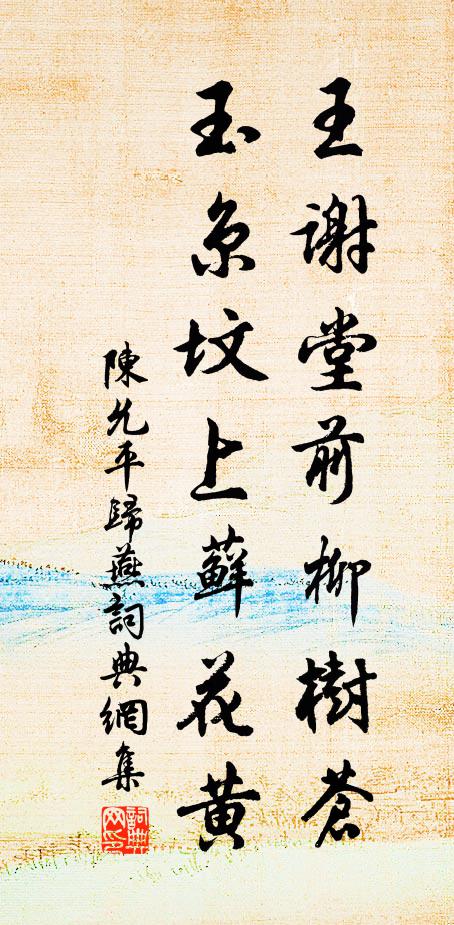 王謝堂前柳樹蒼
玉京墳上蘚花黄
陳允平歸燕詞典網集
詞典網印